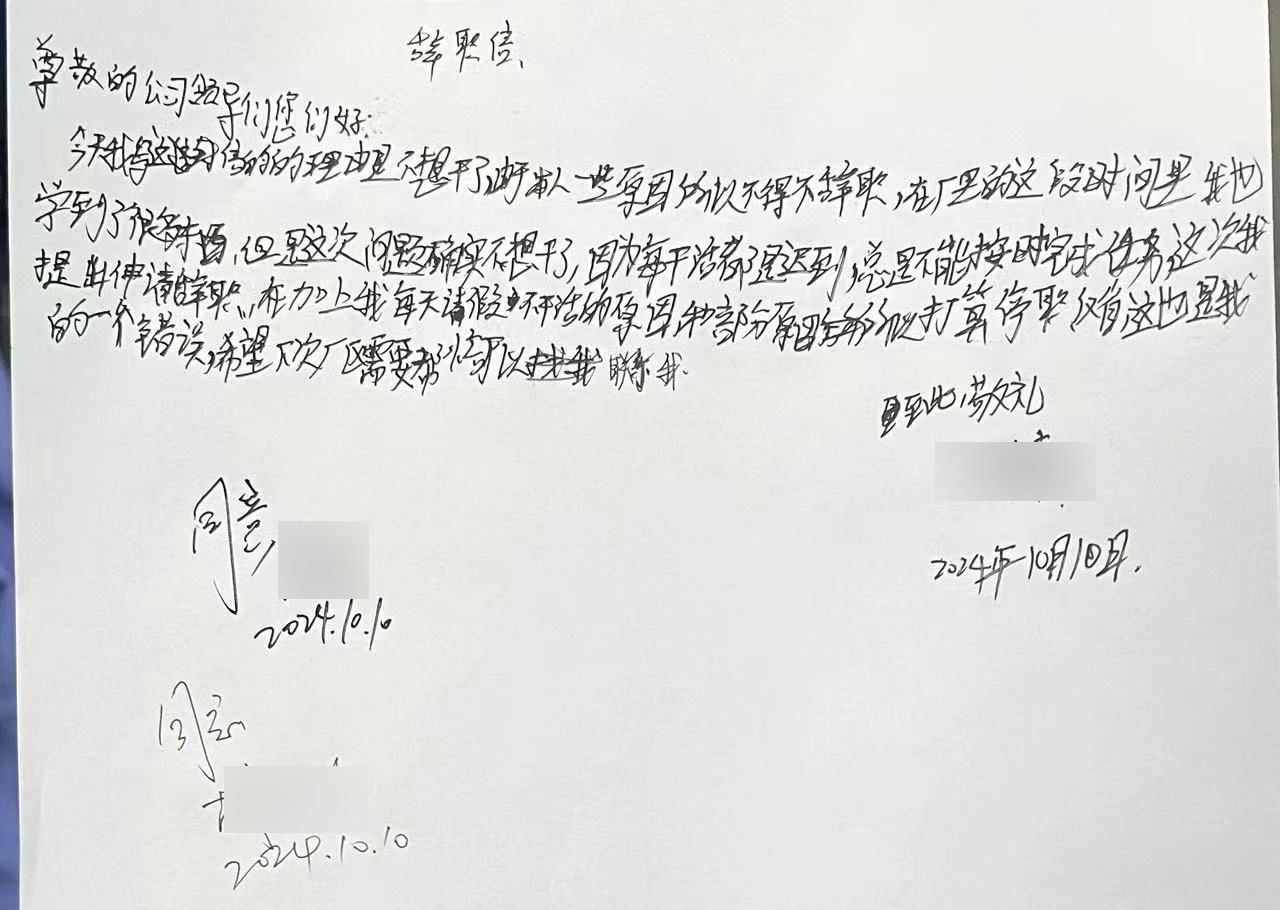 辞职信、
尊敬的公司领导们您们好:
今天我写这封信的的理由是不想干了,由于本人一些原因所以不得不辞职,在厂里的这段时间里我也
学到了很多东西,但是这次问题确实不想干了,因为每干活都是迟到,总是不能按时完成任务,这次我
提出伸请辞职、在加上我每天请假 不干活的原因 部分原因 所以打算停职 没有这也是我
的一个错误,希望下次厂区需要帮忙可以 联系我.
至此,敬礼
2024年10月10日.
同意
2024.10.10
同意
2024.10.10